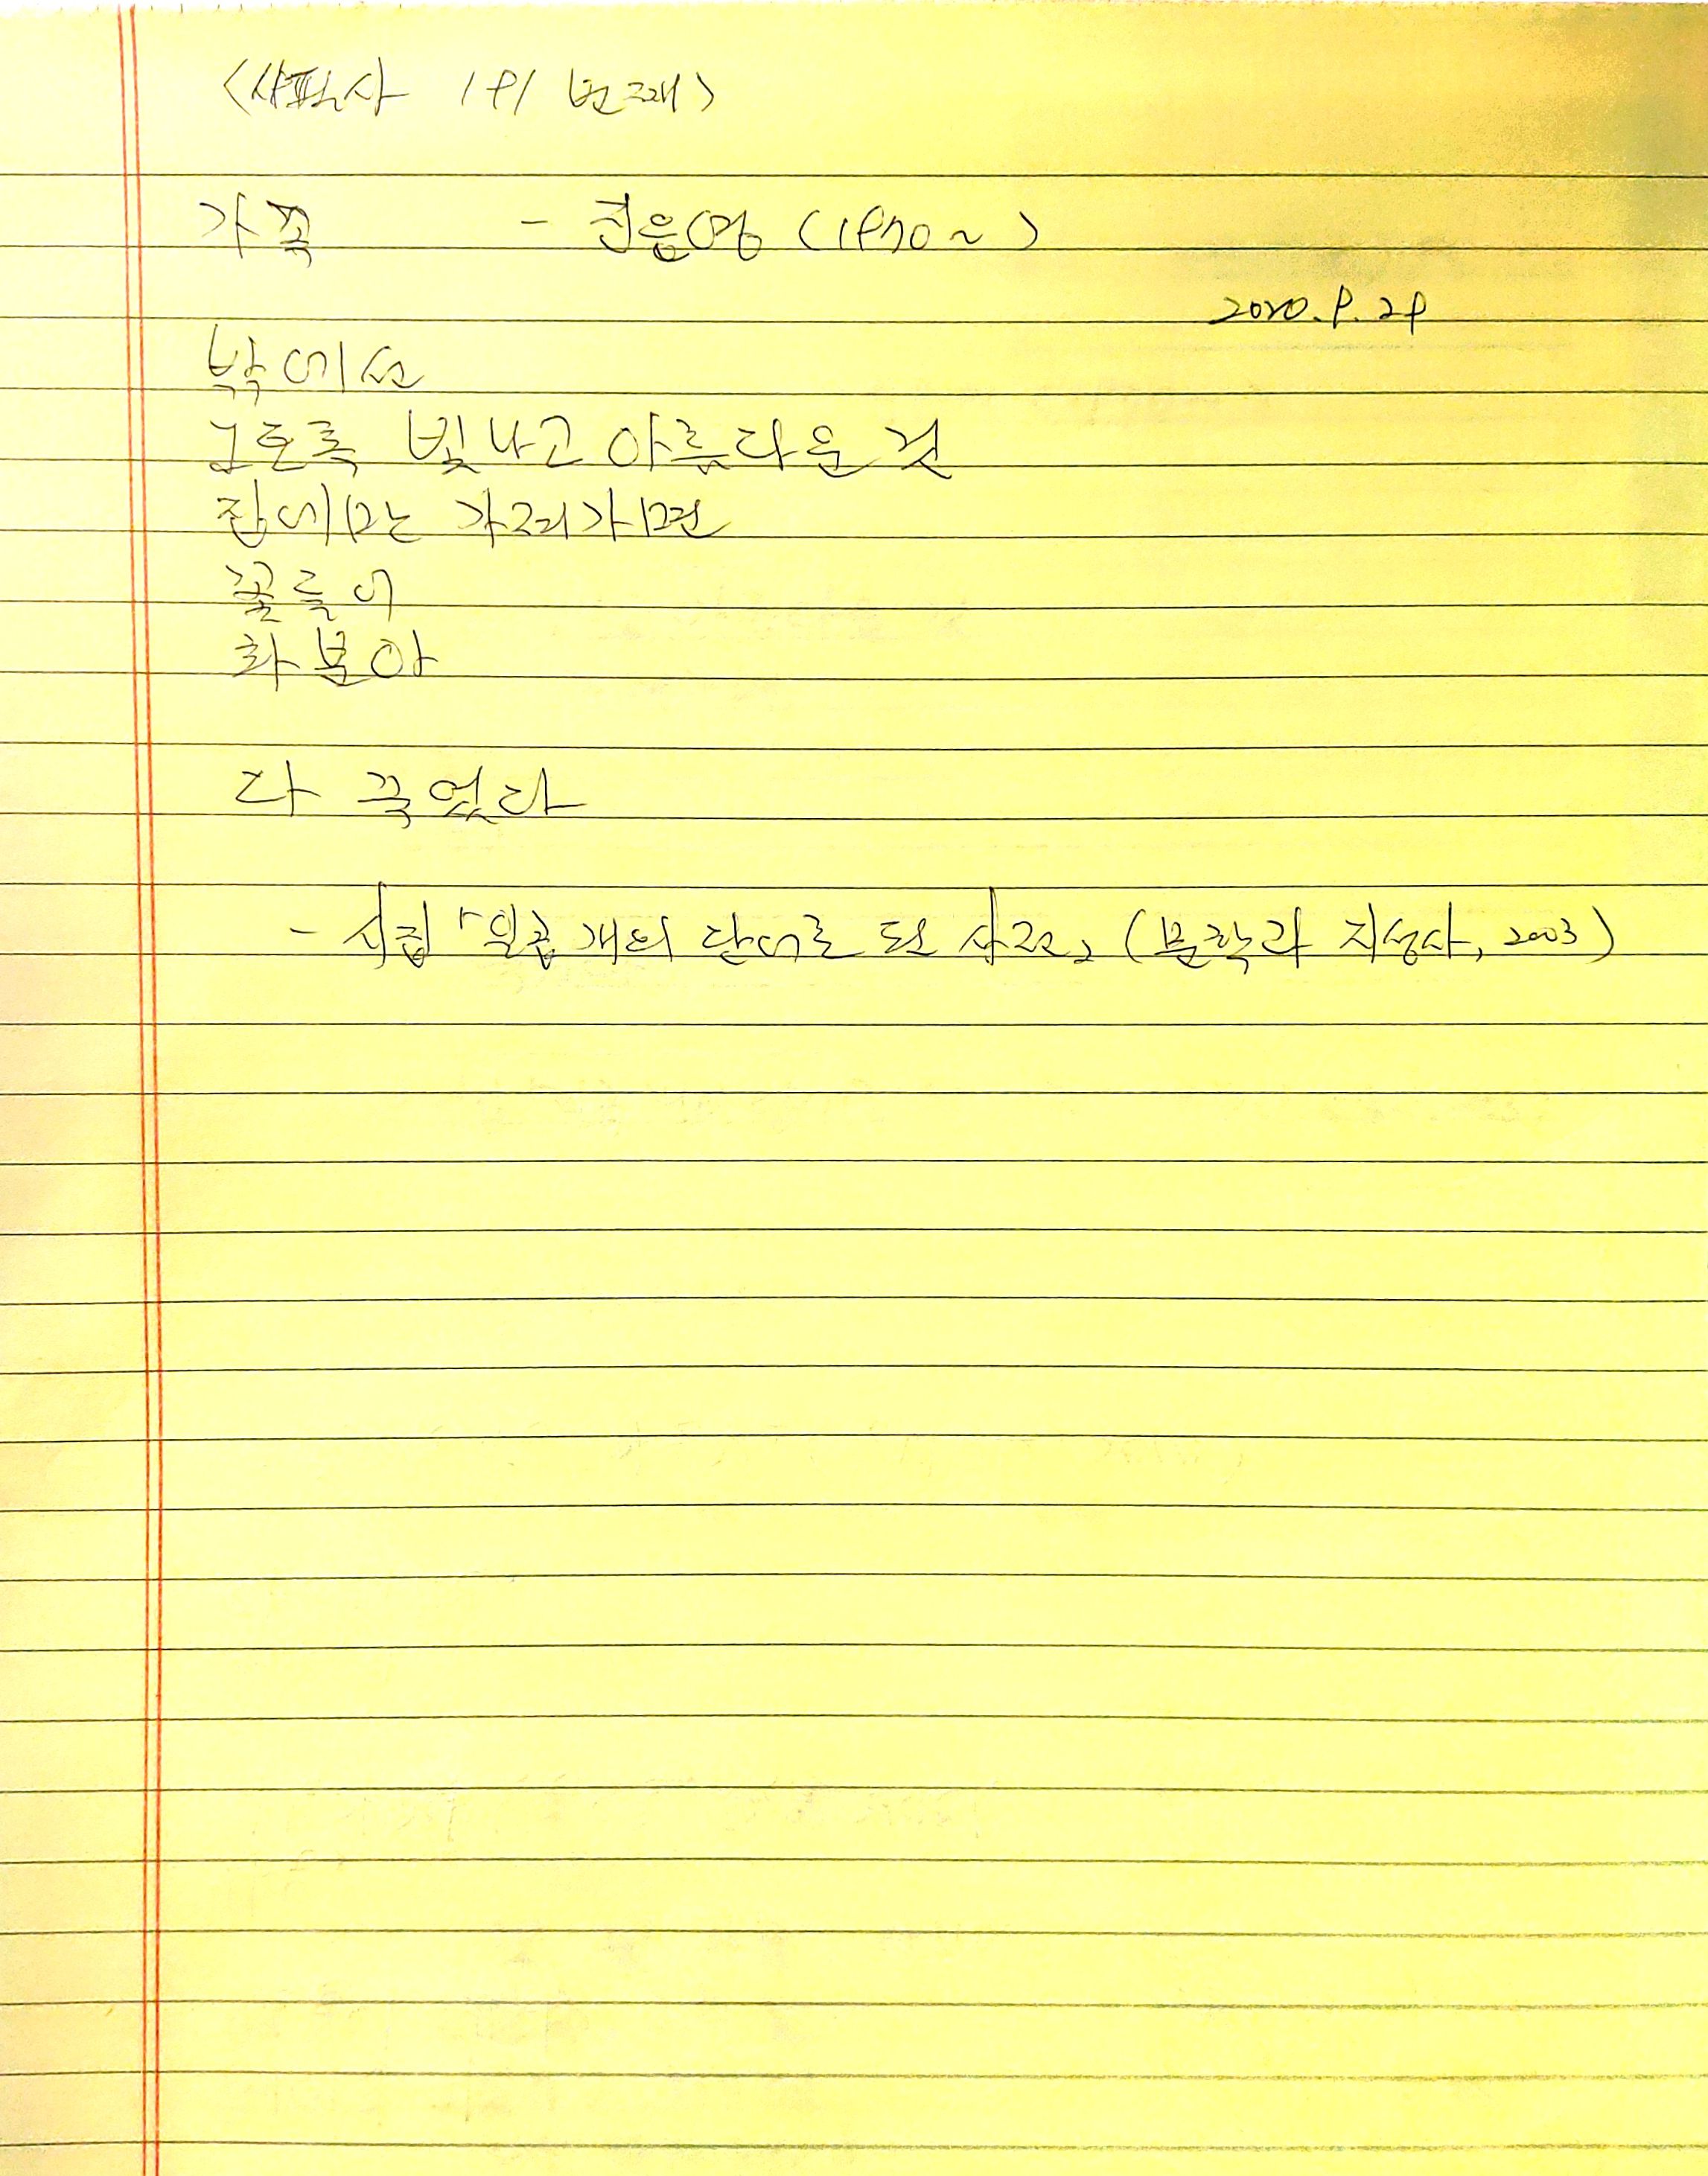 <사판사 191 번째>
가족 - 진은영 (1970~)
2020. 9. 29
밖에선
그토록 빛나고 아름다운 것
집에만 가져가면
꽃들이
화분이
다 죽었다
- 시집 「일곱 개의 단어로 된 사전」 (문학과 지성사, 2003)